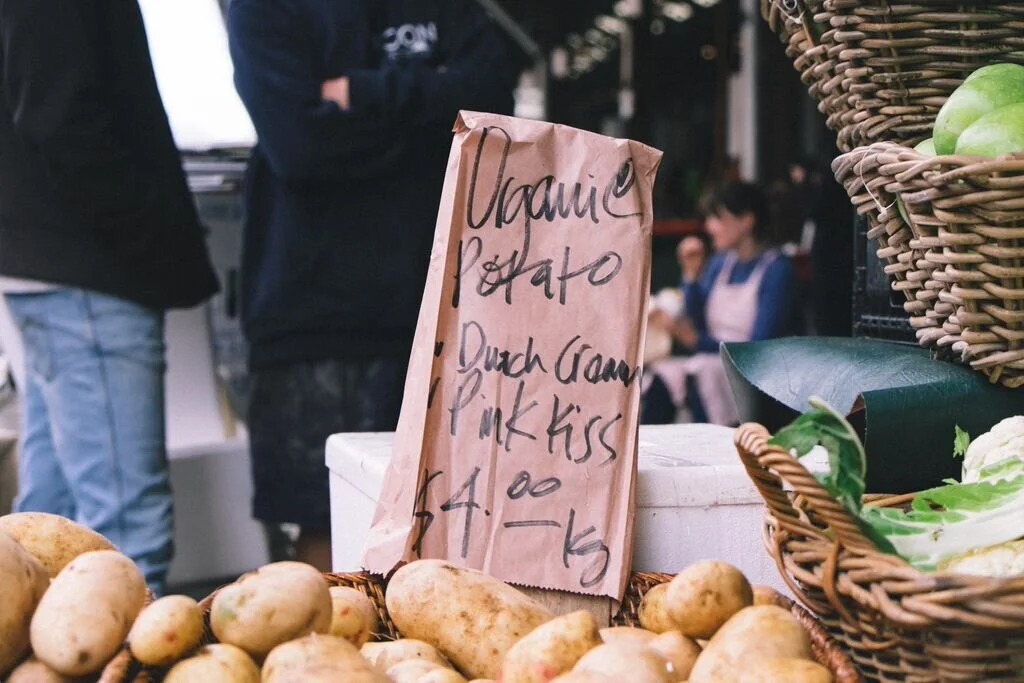 Organic
Potato
Dutch Cream
Pink Kiss
$4.00 kg